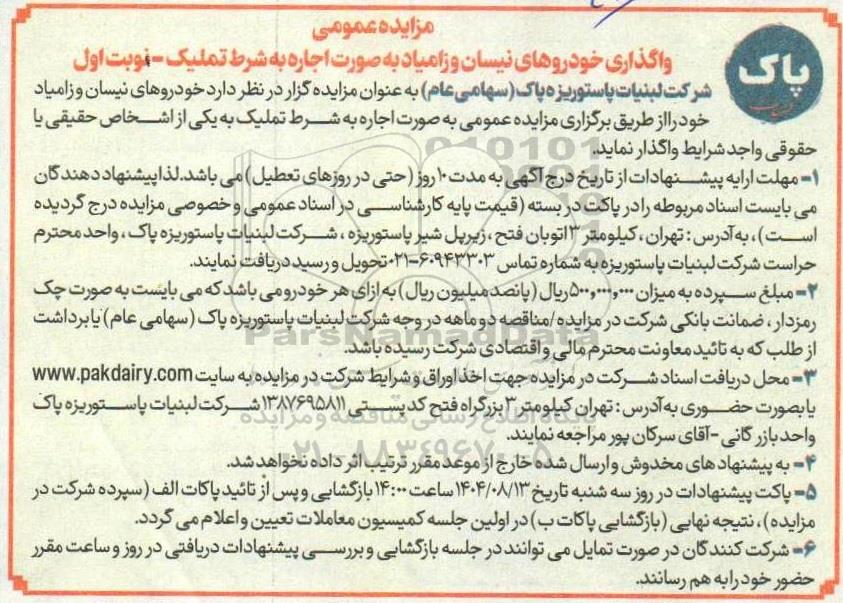 مزایده عمومی
واگذاری خودروهای نیسان وزامیاد به صورت اجاره به شرط تملیک - نوبت اول
پاک
شرکت لبنیات پاستوریزه پاک (سهامی عام) به عنوان مزایده گزار در نظر دارد خودروهای نیسان وزامیاد
خود را از طریق برگزاری مزایده عمومی به صورت اجاره به شرط تملیک به یکی از اشخاص حقیقی یا
حقوقی واجد شرایط واگذار نماید.
۱- مهلت ارایه پیشنهادات از تاریخ درج آگهی به مدت ۱۰ روز (حتی در روزهای تعطیل) می باشد. لذا پیشنهاد دهندگان
می بایست اسناد مربوطه را در پاکت در بسته (قیمت پایه کارشناسی در اسناد عمومی و خصوصی مزایده درج گردیده
است)، به آدرس: تهران، کیلومتر ۳ اتوبان فتح، زیر پل شیر پاستوریزه، شرکت لبنیات پاستوریزه پاک، واحد محترم
حراست شرکت لبنیات پاستوریزه به شماره تماس ۶۰۹۴۳۳۰۳-۰۲۱ تحویل و رسید دریافت نمایند.
۲- مبلغ سپرده به میزان ۵۰۰,۰۰۰,۰۰۰ ریال (پانصد میلیون ریال) به ازای هر خودرو می باشد که می بایست به صورت چک
رمزدار، ضمانت بانکی شرکت در مزایده/مناقصه دو ماهه در وجه شرکت لبنیات پاستوریزه پاک (سهامی عام) یا برداشت
از طلب که به تائید معاونت محترم مالی و اقتصادی شرکت رسیده باشد.
ParsNamadData
۳- محل دریافت اسناد شرکت در مزایده جهت اخذ اوراق و شرایط شرکت در مزایده به سایت www.pakdairy.com
یا بصورت حضوری به آدرس: تهران کیلومتر ۳ بزرگراه فتح کد پستی ۱۳۸۷۶۹۵۸۱۱ شرکت لبنیات پاستوریزه پاک
پایگاه اطلاع رسانی مناقصه و مزایده
واحد بازرگانی - آقای سرکان پور مراجعه نمایند.
۰۲۱-۸۸۳۴۹۶۷۰-۵
۴- به پیشنهاد های مخدوش و ارسال شده خارج از موعد مقرر ترتیب اثر داده نخواهد شد.
۵- پاکت پیشنهادات در روز سه شنبه تاریخ ۱۴۰۴/۰۸/۱۳ ساعت ۱۴:۰۰ بازگشایی و پس از تائید پاکات الف (سپرده شرکت در
مزایده)، نتیجه نهایی (بازگشایی پاکات ب) در اولین جلسه کمیسیون معاملات تعیین و اعلام می گردد.
۶- شرکت کنندگان در صورت تمایل می توانند در جلسه بازگشایی و بررسی پیشنهادات دریافتی در روز و ساعت مقرر
حضور خود را به هم رسانند.